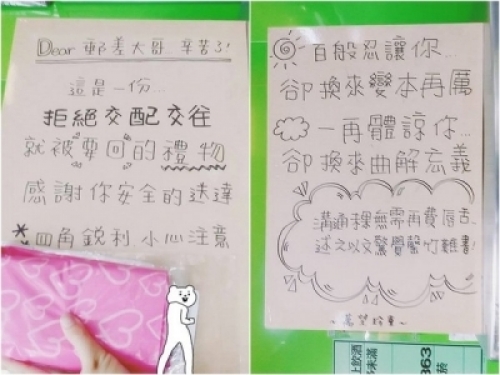 Dear 郵差大哥 辛苦了!
這是一份...
拒絕交配交往
就被要回的禮物
感謝你安全的送達
*四角銳利.小心注意
百般忍讓你...
卻換來變本再厲
一再體諒你...
卻換來曲解忘義
溝通稞無需再費唇舌.
述之以文驚覺罄竹難書!
~萬望珍重~
863